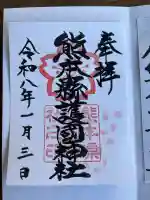 奉拝
熊本縣護國神社
令和八年一月三日